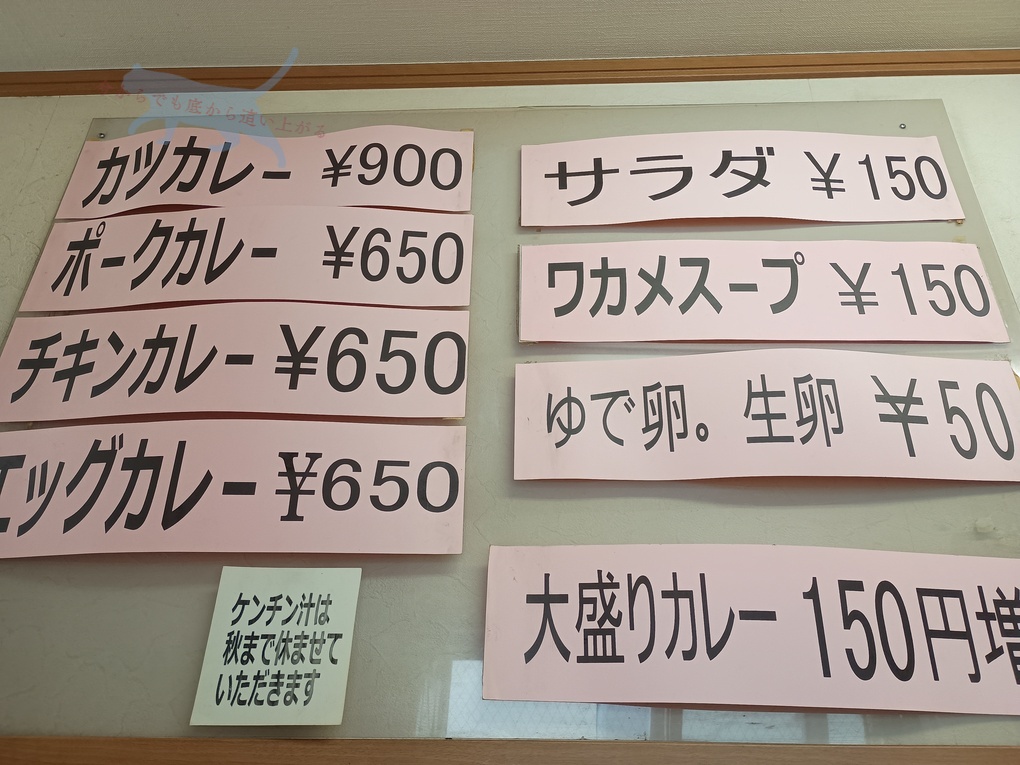 カツカレー ¥900
ポークカレー ¥650
チキンカレー ¥650
エッグカレー ¥650
ケンチン汁は
秋まで休ませて
いただきます
サラダ ¥150
ワカメスープ ¥150
ゆで卵。生卵 ¥50
大盛りカレー 150円増
でも底から這い上がる